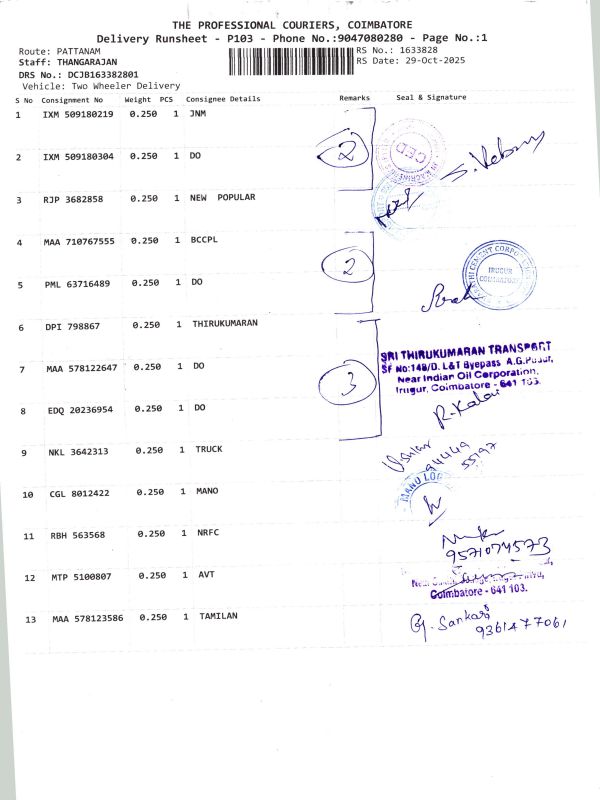 THE PROFESSIONAL COURIERS, COIMBATORE
Delivery Runsheet - P103 - Phone No.:9047080280 - Page No.:1
Route: PATTANAM
Staff: THANGARAJAN
DRS No.: DCJB163382801
Vehicle: Two Wheeler Delivery
RS No.: 1633828
RS Date: 29-Oct-2025
S No Consignment No Weight PCS Consignee Details Remarks Seal & Signature
1 IXM 509180219 0.250 1 JNM
2 IXM 509180304 0.250 1 DO 2
3 RJP 3682858 0.250 1 NEW POPULAR
4 MAA 710767555 0.250 1 BCCPL
2
IRUGUR
COIMBATORE
5 PML 63716489 0.250 1 DO
6 DPI 798867 0.250 1 THIRUKUMARAN
SRI THIRUKUMARAN TRANSPORT
SF No:148/D. L&T Byepass A.G.Pudur,
Near Indian Oil Corporation,
Irugur, Coimbatore - 641 103.
7 MAA 578122647 0.250 1 DO
3
R. Kalai
8 EDQ 20236954 0.250 1 DO
9 NKL 3642313 0.250 1 TRUCK
94449
55197
10 CGL 8012422 0.250 1 MANO
MANO LOG
11 RBH 563568 0.250 1 NRFC
9571074573
12 MTP 5100807 0.250 1 AVT
Coimbatore - 641 103.
13 MAA 578123586 0.250 1 TAMILAN
G. Sankar
9361477061